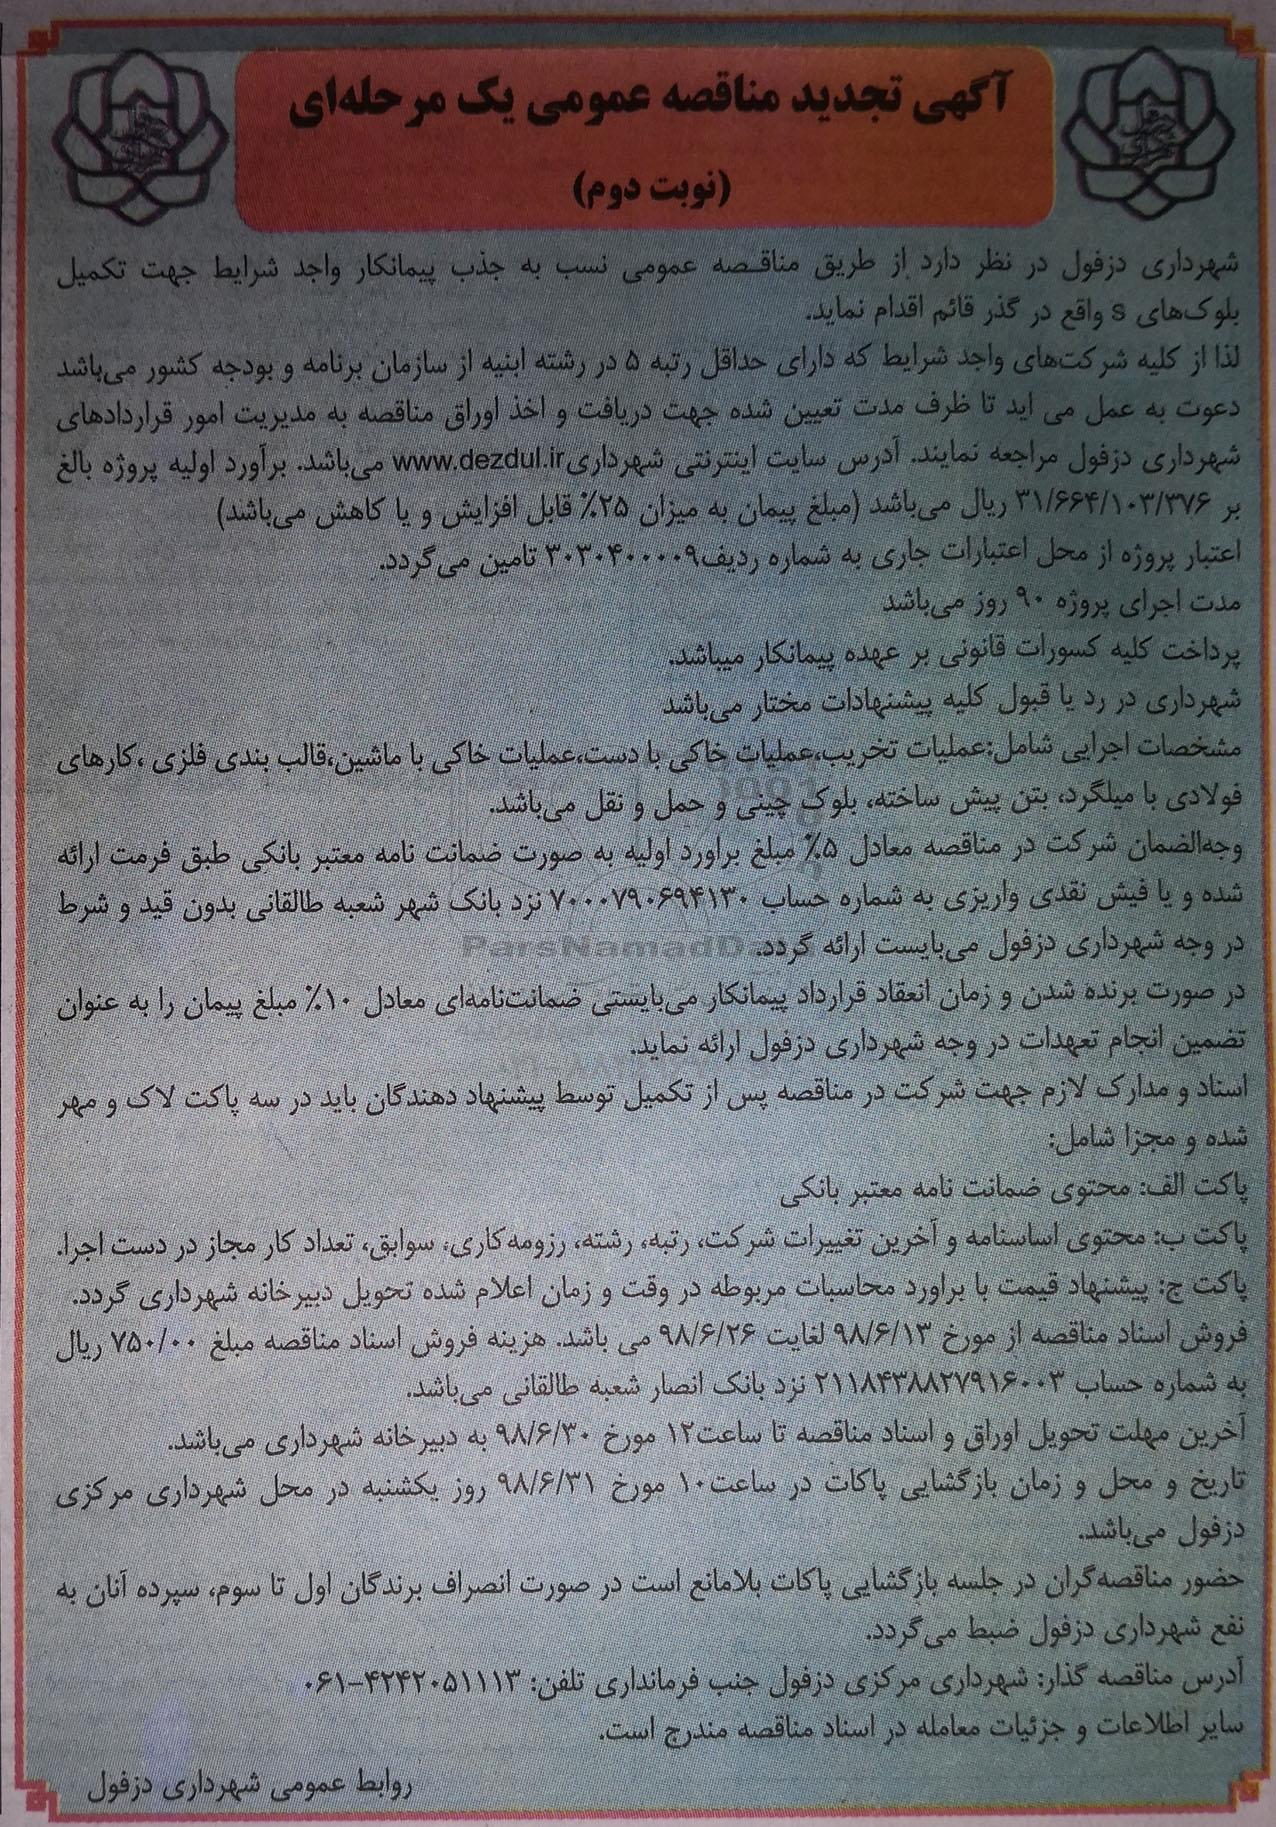 آگهی تجدید مناقصه عمومی یک مرحله‌ای
(نوبت دوم)
شهرداری دزفول در نظر دارد از طریق مناقصه عمومی نسب به جذب پیمانکار واجد شرایط جهت تکمیل
بلوک‌های s واقع در گذر قائم اقدام نماید.
لذا از کلیه شرکت‌های واجد شرایط که دارای حداقل رتبه ۵ در رشته ابنیه از سازمان برنامه و بودجه کشور می‌باشد
دعوت به عمل می اید تا ظرف مدت تعیین شده جهت دریافت و اخذ اوراق مناقصه به مدیریت امور قراردادهای
شهرداری دزفول مراجعه نمایند. آدرس سایت اینترنتی شهرداریwww.dezdul.ir می‌باشد. برآورد اولیه پروژه بالغ
بر ۳۱/۶۶۴/۱۰۳/۳۷۶ ریال می‌باشد (مبلغ پیمان به میزان ۲۵٪ قابل افزایش و یا کاهش می‌باشد)
اعتبار پروژه از محل اعتبارات جاری به شماره ردیف۳۰۳۰۴۰۰۰۰۹ تامین می‌گردد.
مدت اجرای پروژه ۹۰ روز می‌باشد
پرداخت کلیه کسورات قانونی بر عهده پیمانکار میباشد.
شهرداری در رد یا قبول کلیه پیشنهادات مختار می‌باشد
مشخصات اجرایی شامل:عملیات تخریب،عملیات خاکی با دست،عملیات خاکی با ماشین،قالب بندی فلزی ،کارهای
فولادی با میلگرد، بتن پیش ساخته، بلوک چینی و حمل و نقل می‌باشد.
وجه‌الضمان شرکت در مناقصه معادل ۵٪ مبلغ براورد اولیه به صورت ضمانت نامه معتبر بانکی طبق فرمت ارائه
شده و یا فیش نقدی واریزی به شماره حساب ۷۰۰۰۷۹۰۶۹۴۱۳۰ نزد بانک شهر شعبه طالقانی بدون قید و شرط
در وجه شهرداری دزفول می‌بایست ارائه گردد.
ParsNamadDa
در صورت برنده شدن و زمان انعقاد قرارداد پیمانکار می‌بایستی ضمانت‌نامه‌ای معادل ۱۰٪ مبلغ پیمان را به عنوان
تضمین انجام تعهدات در وجه شهرداری دزفول ارائه نماید.
اسناد و مدارک لازم جهت شرکت در مناقصه پس از تکمیل توسط پیشنهاد دهندگان باید در سه پاکت لاک و مهر
شده و مجزا شامل:
پاکت الف: محتوی ضمانت نامه معتبر بانکی
پاکت ب: محتوی اساسنامه و آخرین تغییرات شرکت، رتبه، رشته، رزومه‌کاری، سوابق، تعداد کار مجاز در دست اجرا.
پاکت ج: پیشنهاد قیمت با براورد محاسبات مربوطه در وقت و زمان اعلام شده تحویل دبیرخانه شهرداری گردد.
فروش اسناد مناقصه از مورخ ۹۸/۶/۱۳ لغایت ۹۸/۶/۲۶ می باشد. هزینه فروش اسناد مناقصه مبلغ ۷۵۰/۰۰ ریال
به شماره حساب ۲۱۱۸۴۳۸۸۲۷۹۱۶۰۰۳ نزد بانک انصار شعبه طالقانی می‌باشد.
آخرین مهلت تحویل اوراق و اسناد مناقصه تا ساعت۱۲ مورخ ۹۸/۶/۳۰ به دبیرخانه شهرداری می‌باشد.
تاریخ و محل و زمان بازگشایی پاکات در ساعت۱۰ مورخ ۹۸/۶/۳۱ روز یکشنبه در محل شهرداری مرکزی
دزفول می‌باشد.
حضور مناقصه‌گران در جلسه بازگشایی پاکات بلامانع است در صورت انصراف برندگان اول تا سوم، سپرده آنان به
نفع شهرداری دزفول ضبط می‌گردد.
آدرس مناقصه گذار: شهرداری مرکزی دزفول جنب فرمانداری تلفن: ۴۲۴۲۰۵۱۱۱۳-۰۶۱
سایر اطلاعات و جزئیات معامله در اسناد مناقصه مندرج است.
روابط عمومی شهرداری دزفول